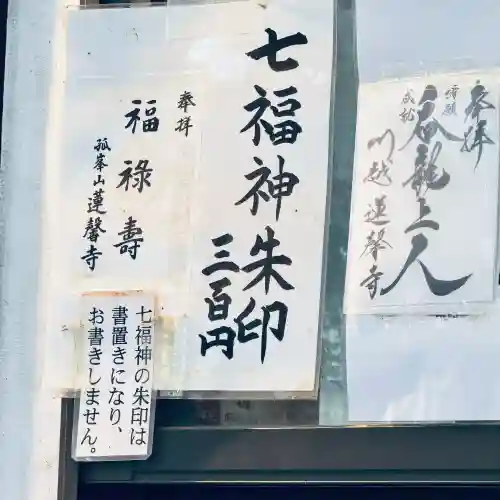 七福神朱印
三百円
奉拝
福祿壽
孤峯山蓮馨寺
七福神の朱印は
書置きになり、
お書きしません。
奉拝
呑龍上人
川越蓮馨寺